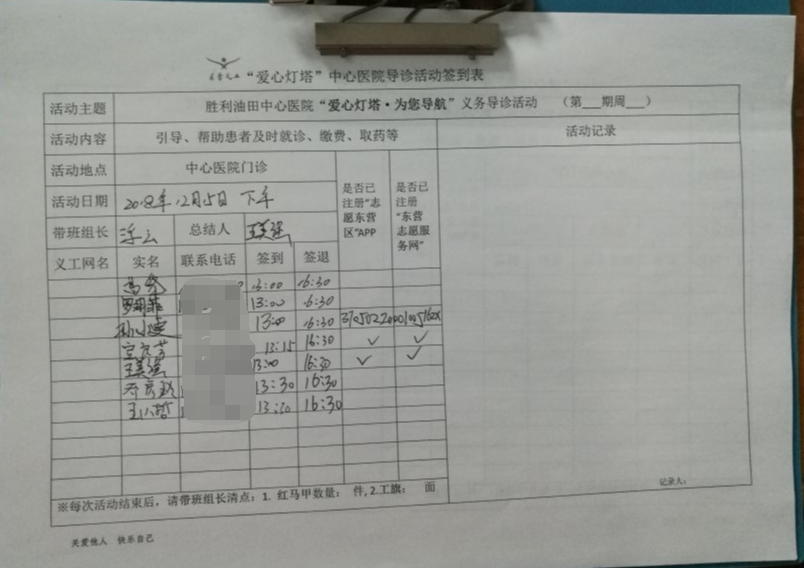 “爱心灯塔”中心医院导诊活动签到表
活动主题 胜利油田中心医院“爱心灯塔·为您导航”义务导诊活动 （第___期周___）
活动内容 引导、帮助患者及时就诊、缴费、取药等 活动记录
活动地点 中心医院门诊 是否已注册“志愿东营区”APP 是否已注册“东营志愿服务网”
活动日期 12月15日 下午
带班组长 总结人 王美强
义工网名 实名 联系电话 签到 签退
13:00 16:30
13:00 16:30
13:00 16:30
13:15 16:30 ✓ ✓
王美强 13:00 16:30 ✓ ✓
13:30 16:30
13:30 16:30
※每次活动结束后，请带班组长清点：1. 红马甲数量： 件，2.工旗： 面
记录人：
关爱他人 快乐自己